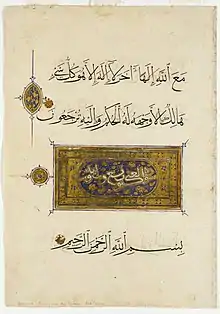 مَعَ اللَّهِ إِلَٰهًا آخَرَ لَا إِلَٰهَ إِلَّا هُوَ كُلُّ شَيْءٍ
هَالِكٌ إِلَّا وَجْهَهُ لَهُ الْحُكْمُ وَإِلَيْهِ تُرْجَعُونَ
بِسْمِ اللَّهِ الرَّحْمَٰنِ الرَّحِيمِ